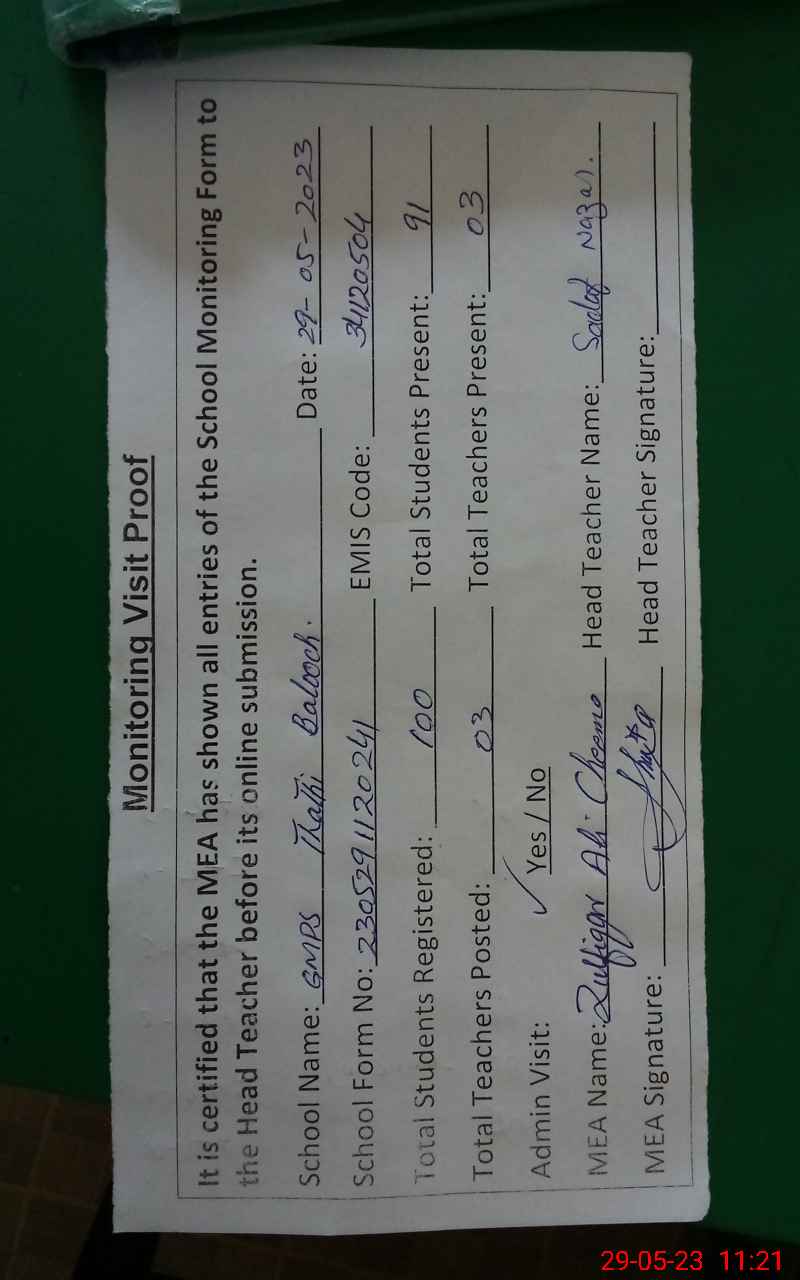 Monitoring Visit Proof
It is certified that the MEA has shown all entries of the School Monitoring Form to
the Head Teacher before its online submission.
School Name: GMPS Thathi Balooch. Date: 29-05-2023
School Form No: 2305291120241 EMIS Code: 34120504
Total Students Registered: 100 Total Students Present: 91
Total Teachers Posted: 03 Total Teachers Present: 03
Admin Visit: ✓ Yes / No
MEA Name: Zulfiqar Ali Cheema Head Teacher Name: Sadaf Nazar.
MEA Signature: Head Teacher Signature:
29-05-23 11:21